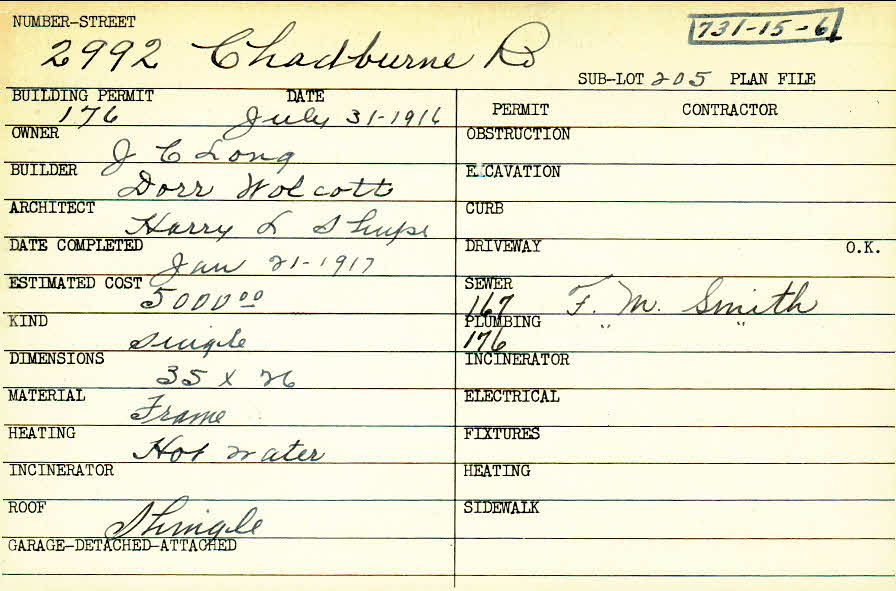 NUMBER-STREET
731-15-6
2992 Chadburne Rd
SUB-LOT 205 PLAN FILE
BUILDING PERMIT DATE
176 July 31-1916
OWNER
J C Long
BUILDER
Dorr Wolcott
ARCHITECT
Harry L Shupe
DATE COMPLETED
Jan 21-1917
ESTIMATED COST
5000 00
KIND
Single
DIMENSIONS
35 x 26
MATERIAL
Frame
HEATING
Hot water
INCINERATOR
ROOF
Shingle
GARAGE-DETACHED-ATTACHED
PERMIT CONTRACTOR
OBSTRUCTION
EXCAVATION
CURB
DRIVEWAY O.K.
SEWER
167 F. M. Smith
PLUMBING " "
176
INCINERATOR
ELECTRICAL
FIXTURES
HEATING
SIDEWALK